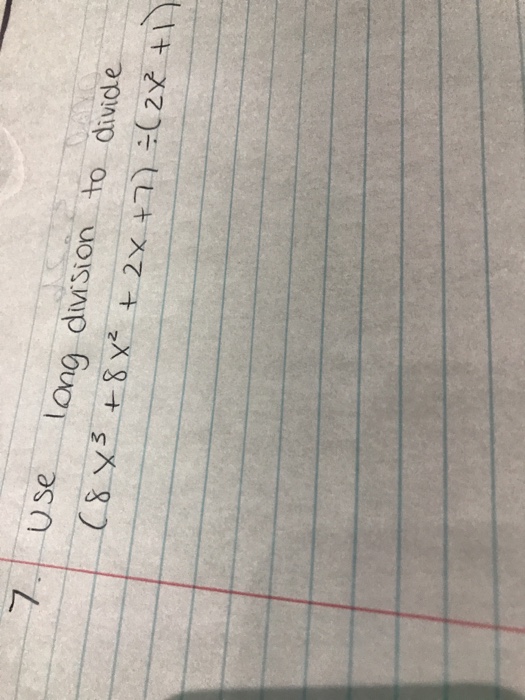 7. Use long division to divide
(8x³ + 8x² + 2x + 7) ÷ (2x² + 1)